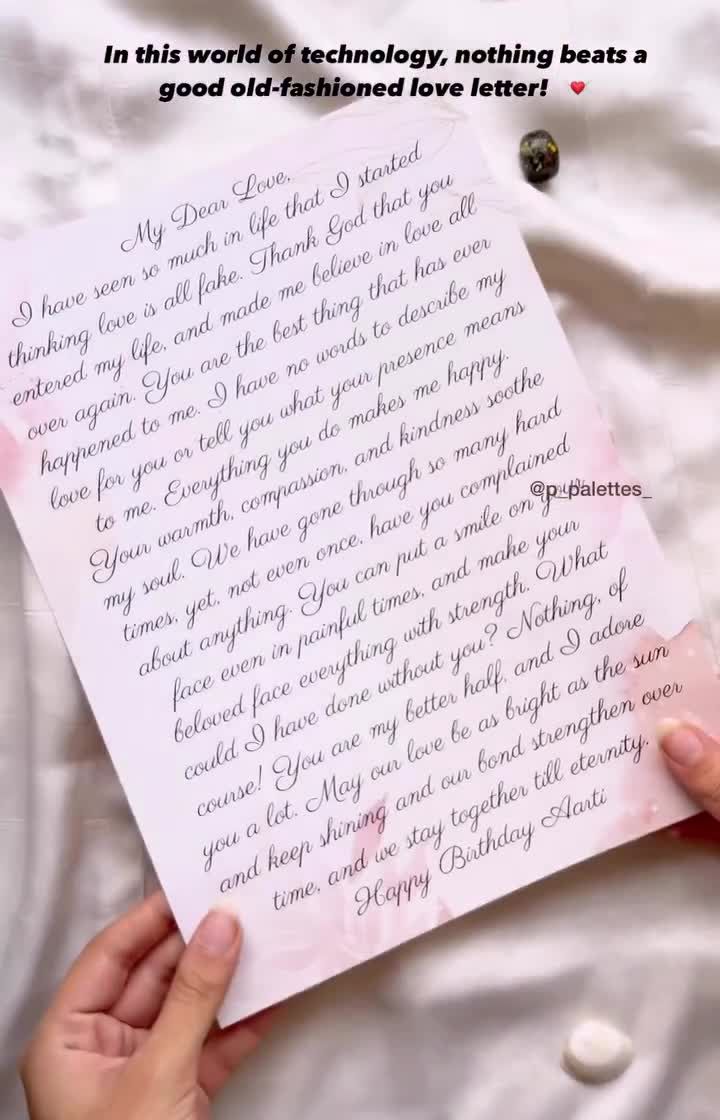 In this world of technology, nothing beats a
good old-fashioned love letter! ❤️
My Dear Love,
I have seen so much in life that I started
thinking love is all fake. Thank God that you
entered my life, and made me believe in love all
over again. You are the best thing that has ever
happened to me. I have no words to describe my
love for you or tell you what your presence means
to me. Everything you do makes me happy.
Your warmth, compassion, and kindness soothe
my soul. We have gone through so many hard
times, yet, not even once, have you complained
about anything. You can put a smile on your
@p_palettes_
face even in painful times, and make your
beloved face everything with strength. What
could I have done without you? Nothing, of
course! You are my better half, and I adore
you a lot. May our love be as bright as the sun
and keep shining and our bond strengthen over
time, and we stay together till eternity.
Happy Birthday Aarti